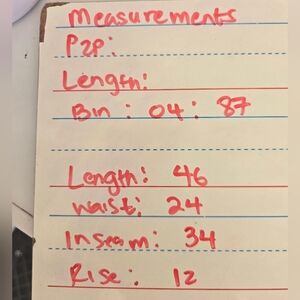 Measurements
P2P:
Length:
Bin : 04 : 87
Length: 46
Waist: 24
Inseam: 34
Rise: 12